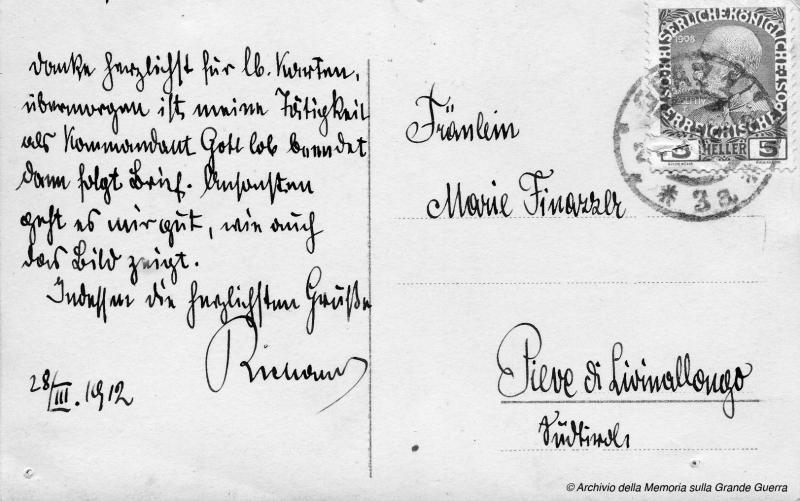 Danke herzlichst für lb. Karten,
übermorgen ist meine Tätigkeit
als Kommandant Gott lob beendet
dann folgt Brief. Ansonsten
geht es mir gut, wie auch
das Bild zeigt.
Indessen die herzlichsten Grüße
Richard
28/III. 1912
Fräulein
Marie Finazzer
Pieve di Livinallongo
Südtirol
KAISERLICHEKÖNIGLICHE
ÖSTERREICHISCHE
1908
5 HELLER 5
* 3a *
© Archivio della Memoria sulla Grande Guerra